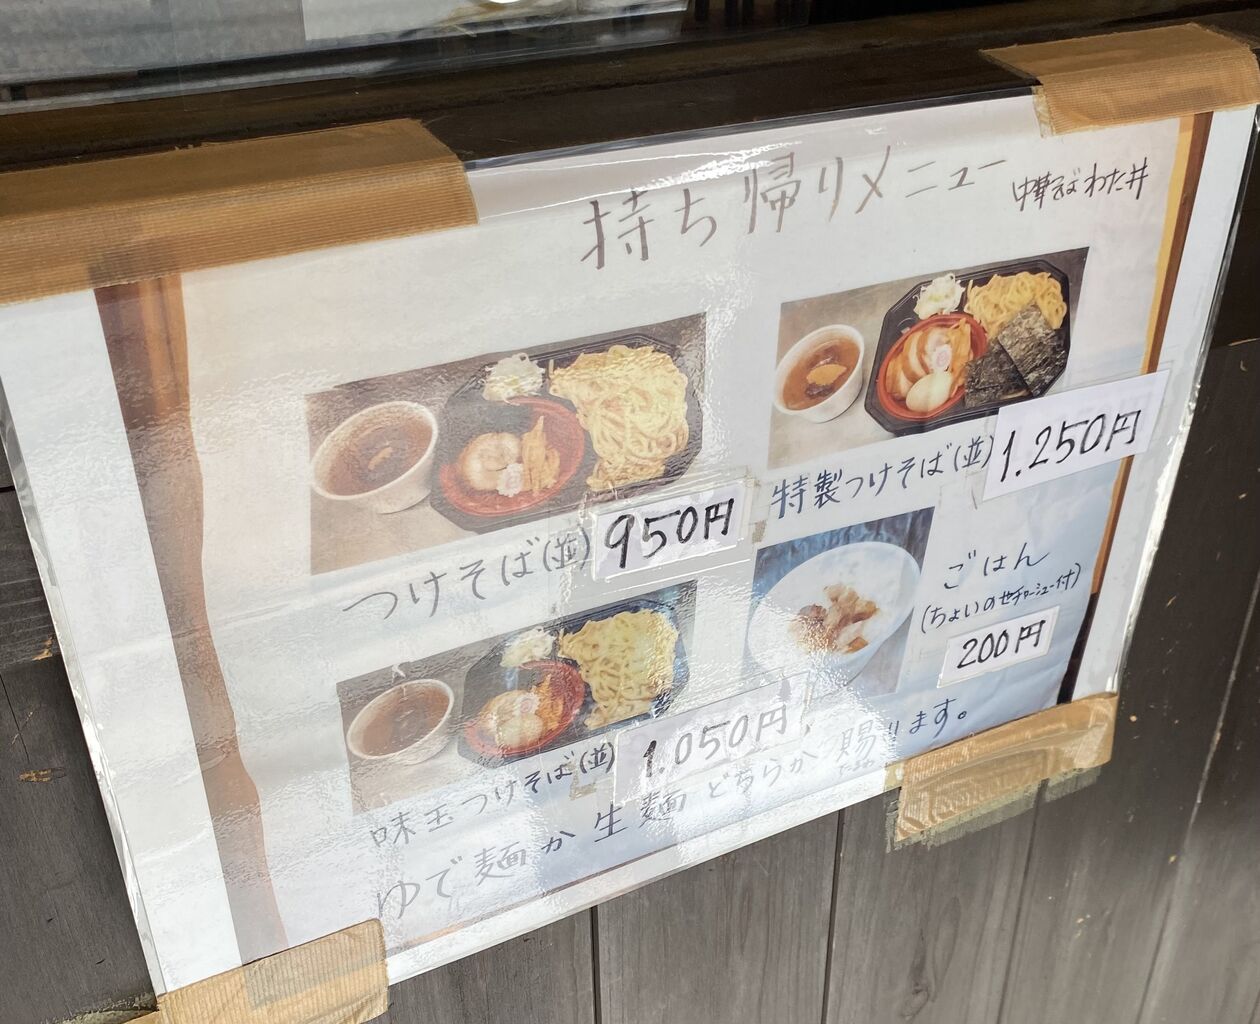 持ち帰りメニュー
中華そば わた井
つけそば(並)
950円
特製つけそば(並)
1.250円
味玉つけそば(並)
1.050円
ごはん
(ちょいのせチャーシュー付)
200円
ゆで麺か生麺どちらか賜ります。
たまわ